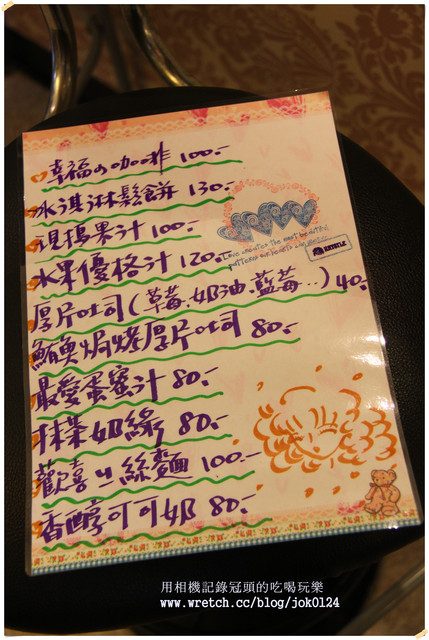 幸福の咖啡 100.-
冰淇淋鬆餅 130.-
現搗果汁 100.-
水果優格汁 120.-
Love creates the most beautiful
patterns our hearts can
厚片吐司(草莓.奶油.藍莓..) 40.-
鮪魚焗烤厚片吐司 80.-
最愛蛋蜜汁 80.-
抹茶奶綠 80.-
歡喜ㄉ絲麵 100.-
香醇可可奶 80.-
用相機記錄冠頭的吃喝玩樂
www.wretch.cc/blog/jok0124